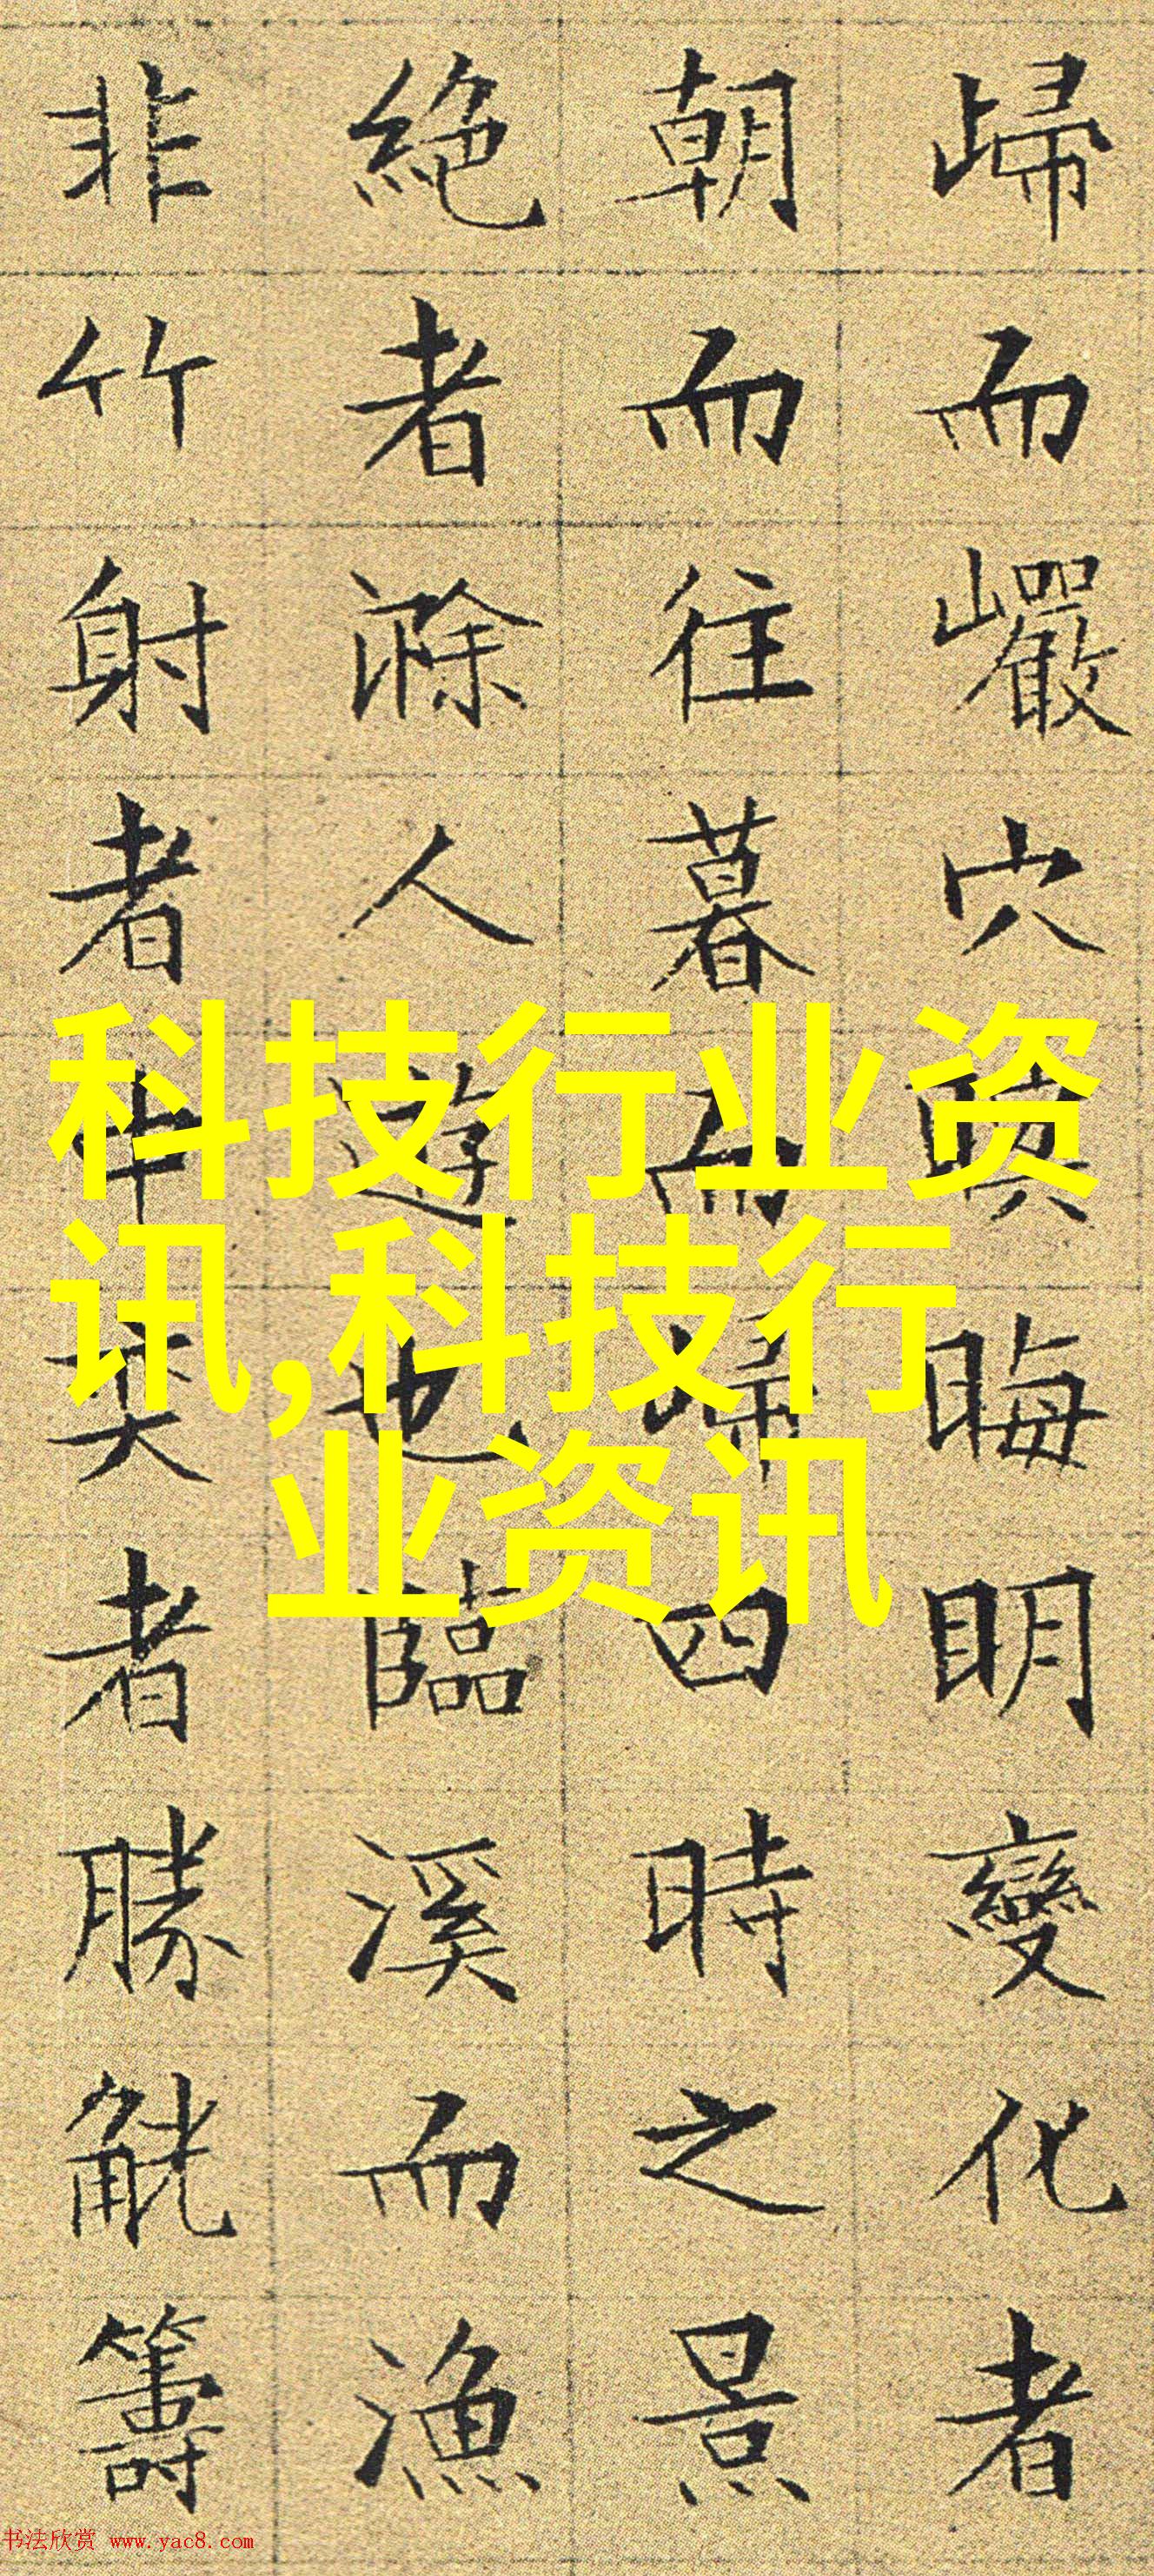 歸而巖穴暝晦明變化者
朝而往暮而歸四時之景
絶者滁人遊也臨溪而漁
非竹射者中奕者勝觥籌
科技行业资
讯,科技行
业资讯
书法欣赏 www.yac8.com